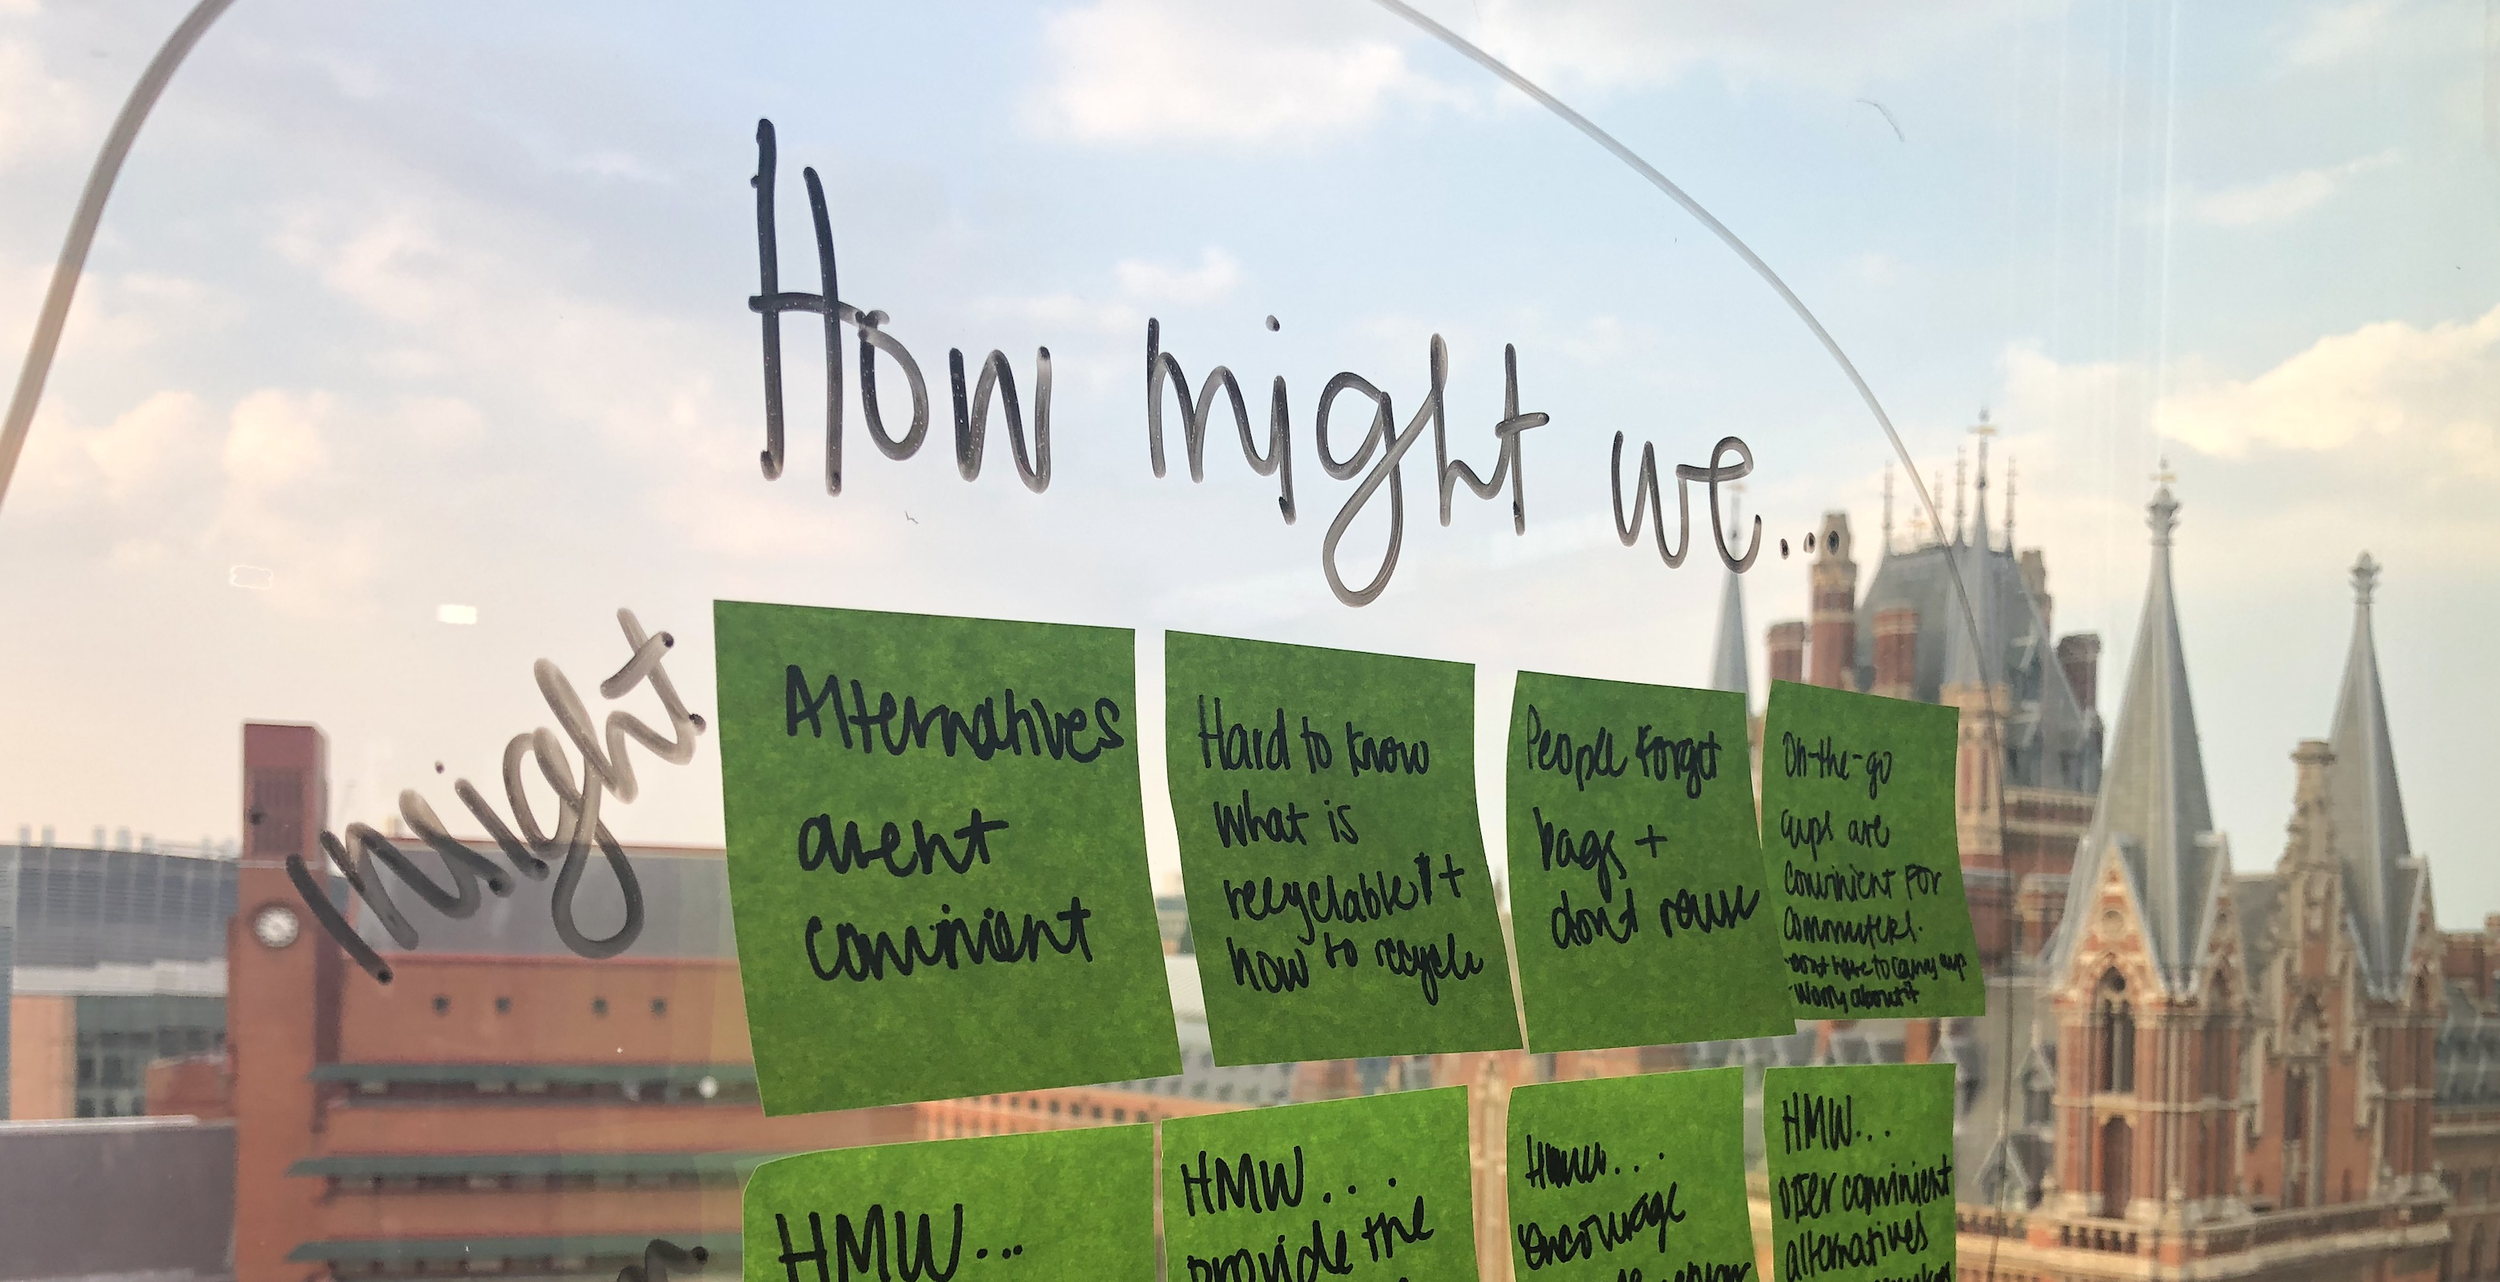 How might we...
might
Alternatives
arent
convinient
Hard to know
what is
recyclable +
how to recycle
People forget
bags +
dont reuse
On-the-go
cups are
convinient for
commuters.
-dont have to carry cup
-worry about it
HMW...
HMW...
provide the
HMW...
encourage
HMW...
offer convinient
alternatives